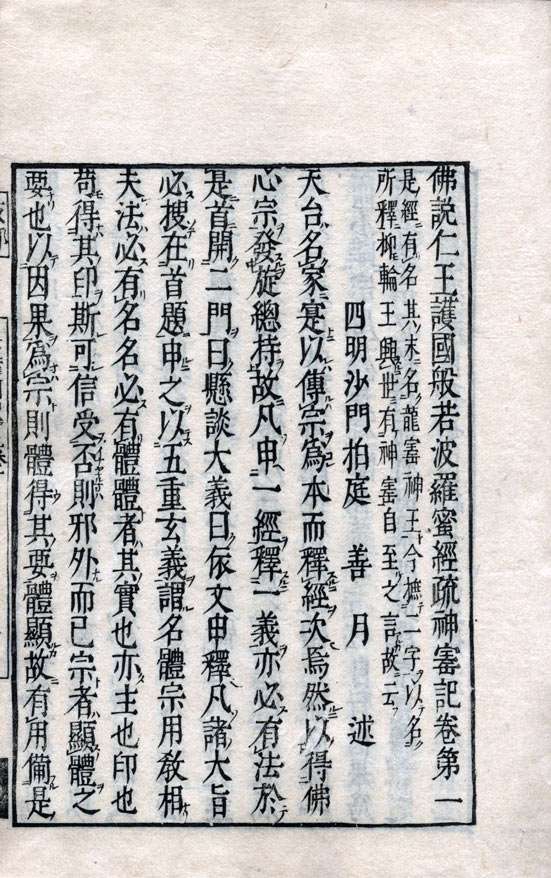 佛說仁王護國般若波羅蜜經疏神寶記卷第一
是經有名其末名龍寶神王今摭二字以名
所釋抑輪王興世有神寶自至之言故云
四明沙門柏庭 善 月 述
天台名家寔以傳宗爲本而釋經次焉然以得佛
心宗發旋總持故凡申一經釋一義亦必有法於
是首開二門曰懸談大義曰依文申釋凡諸大旨
必搜在首題申之以五重玄義謂名體宗用敎相
夫法必有名名必有體體者其實也亦主也印也
苟得其印斯可信受否則邪外而已宗者顯體之
要也以因果爲宗則體得其要體顯故有用備是